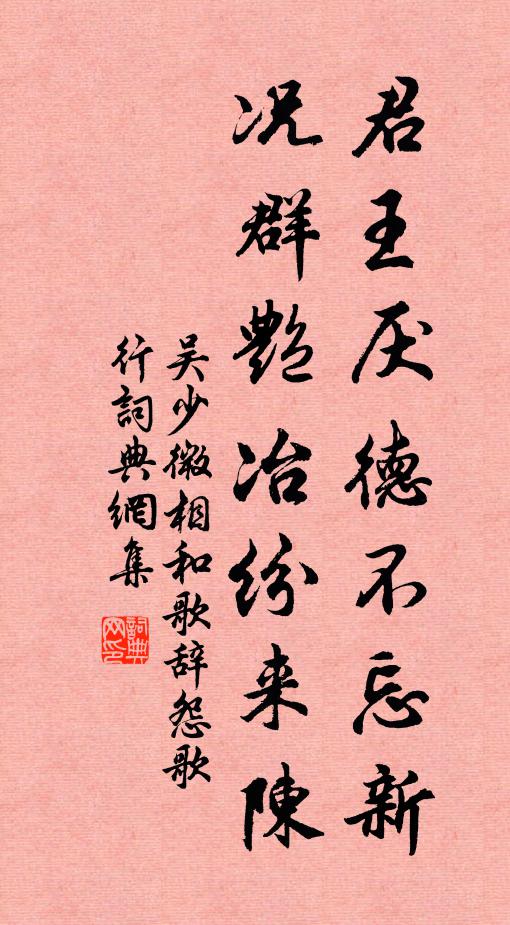 君王厌德不忘新
况群艷冶纷来陳
吴少微相和歌辞怨歌
行詞典網集
詞典
网印